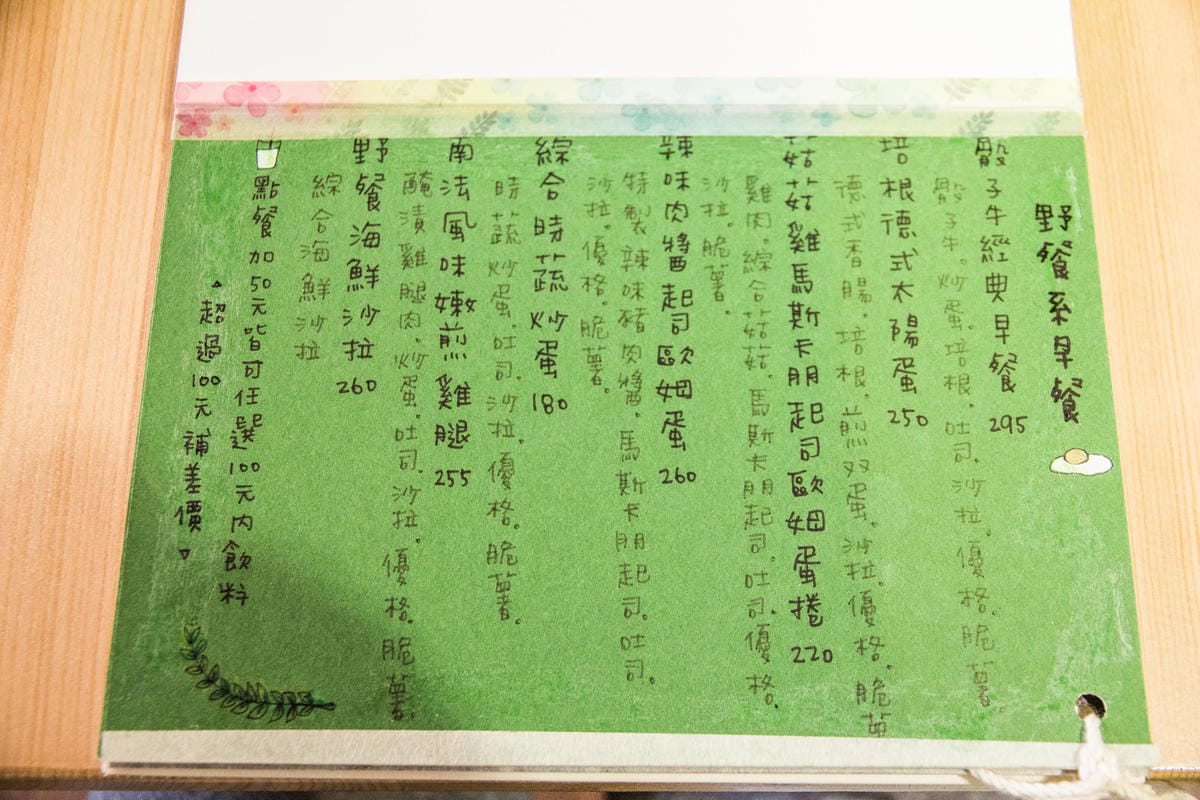 野餐系早餐
骰子牛經典早餐 295
骰子牛。炒蛋。培根。吐司。沙拉。優格。脆薯。
培根德式太陽蛋 250
德式香腸。培根。煎双蛋。沙拉。優格。脆薯
菇菇雞馬斯卡朋起司歐姆蛋捲 220
雞肉。綜合菇菇。馬斯卡朋起司。吐司。優格。
沙拉。脆薯。
辣味肉醬起司歐姆蛋 260
特製辣味豬肉醬。馬斯卡朋起司。吐司。
沙拉。優格。脆薯。
綜合時蔬炒蛋 180
時蔬炒蛋。吐司。沙拉。優格。脆薯。
南法風味嫩煎雞腿 255
醃漬雞腿肉。炒蛋。吐司。沙拉。優格。脆薯。
野餐海鮮沙拉 260
綜合海鮮沙拉
點餐加50元皆可任選100元內飲料
。超過100元補差價。